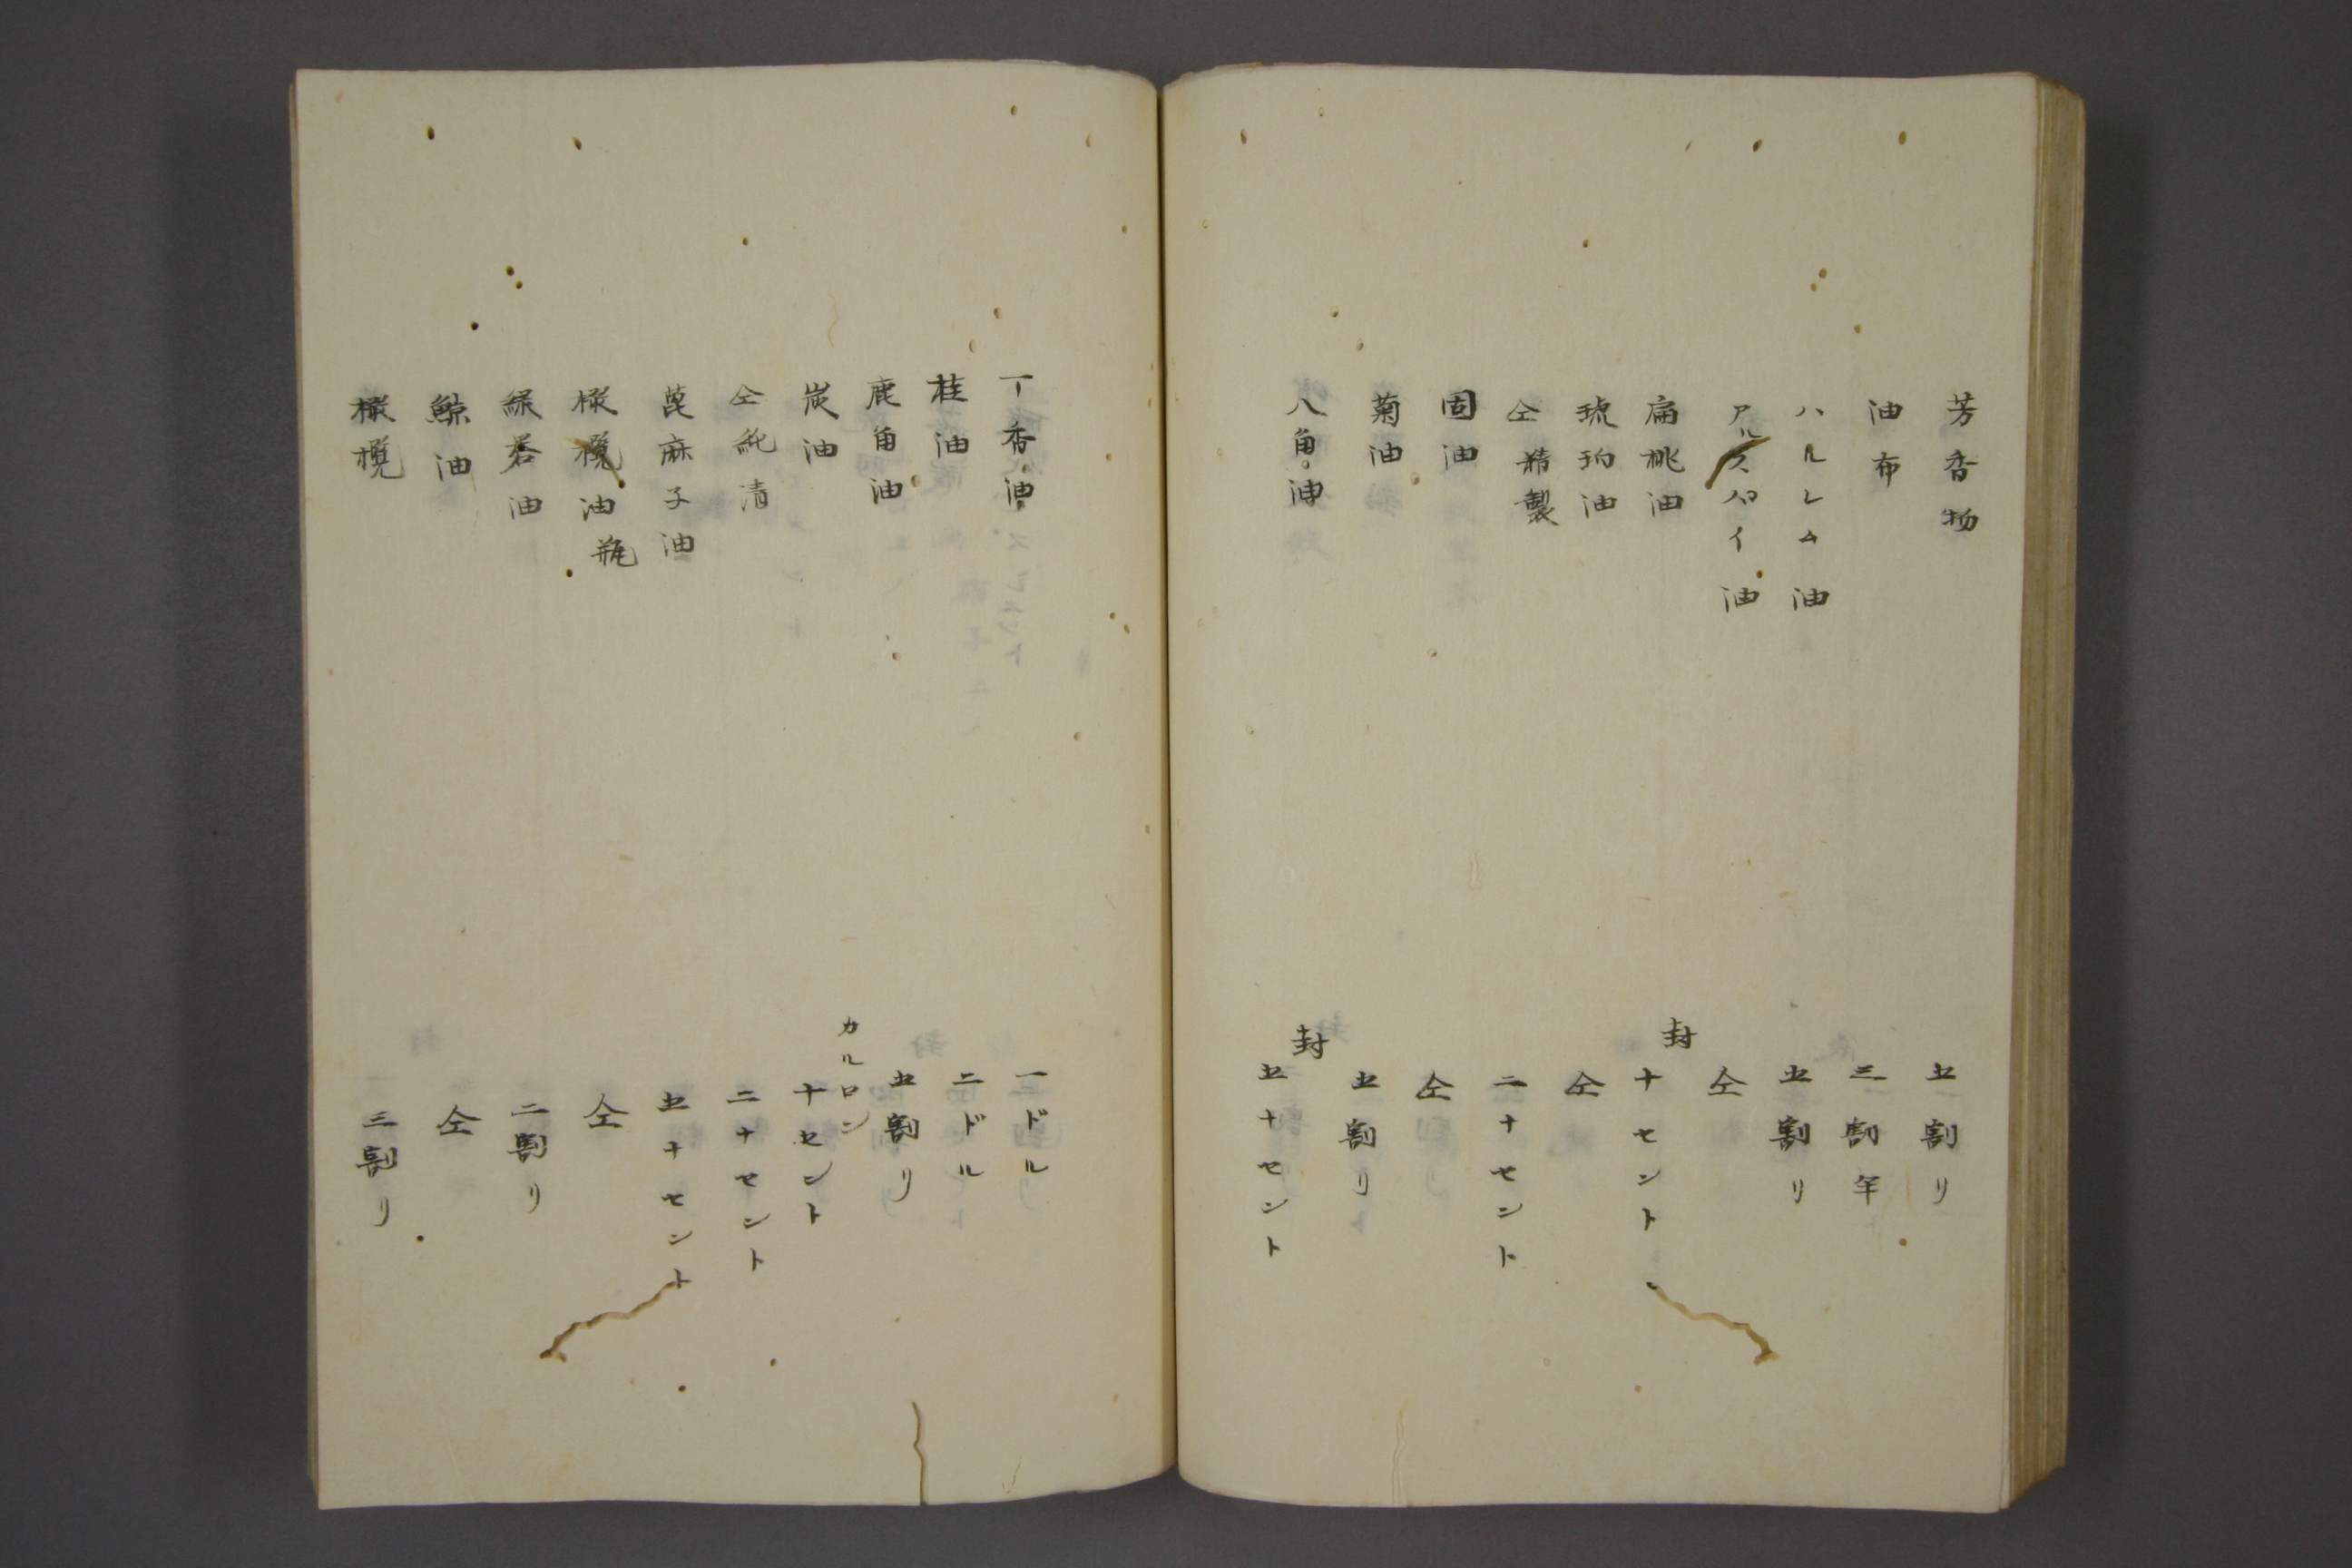 芳香物 五割リ
油布 三割年
ハルレム油 五割リ
アルスパイ油 仝
扁桃油 封 十セント
琥珀油 仝
仝精製 二十セント
固油 仝
菊油 五割リ
八角油 封 五十セント
丁香油 一ドル
桂油 二ドル
鹿角油 五割リ
炭油 カルロン 十セント
仝純清 二十セント
萞麻子油 五十セント
橄欖油瓶 仝
緑礬油 二割リ
鯨油 仝
橄欖 三割リ